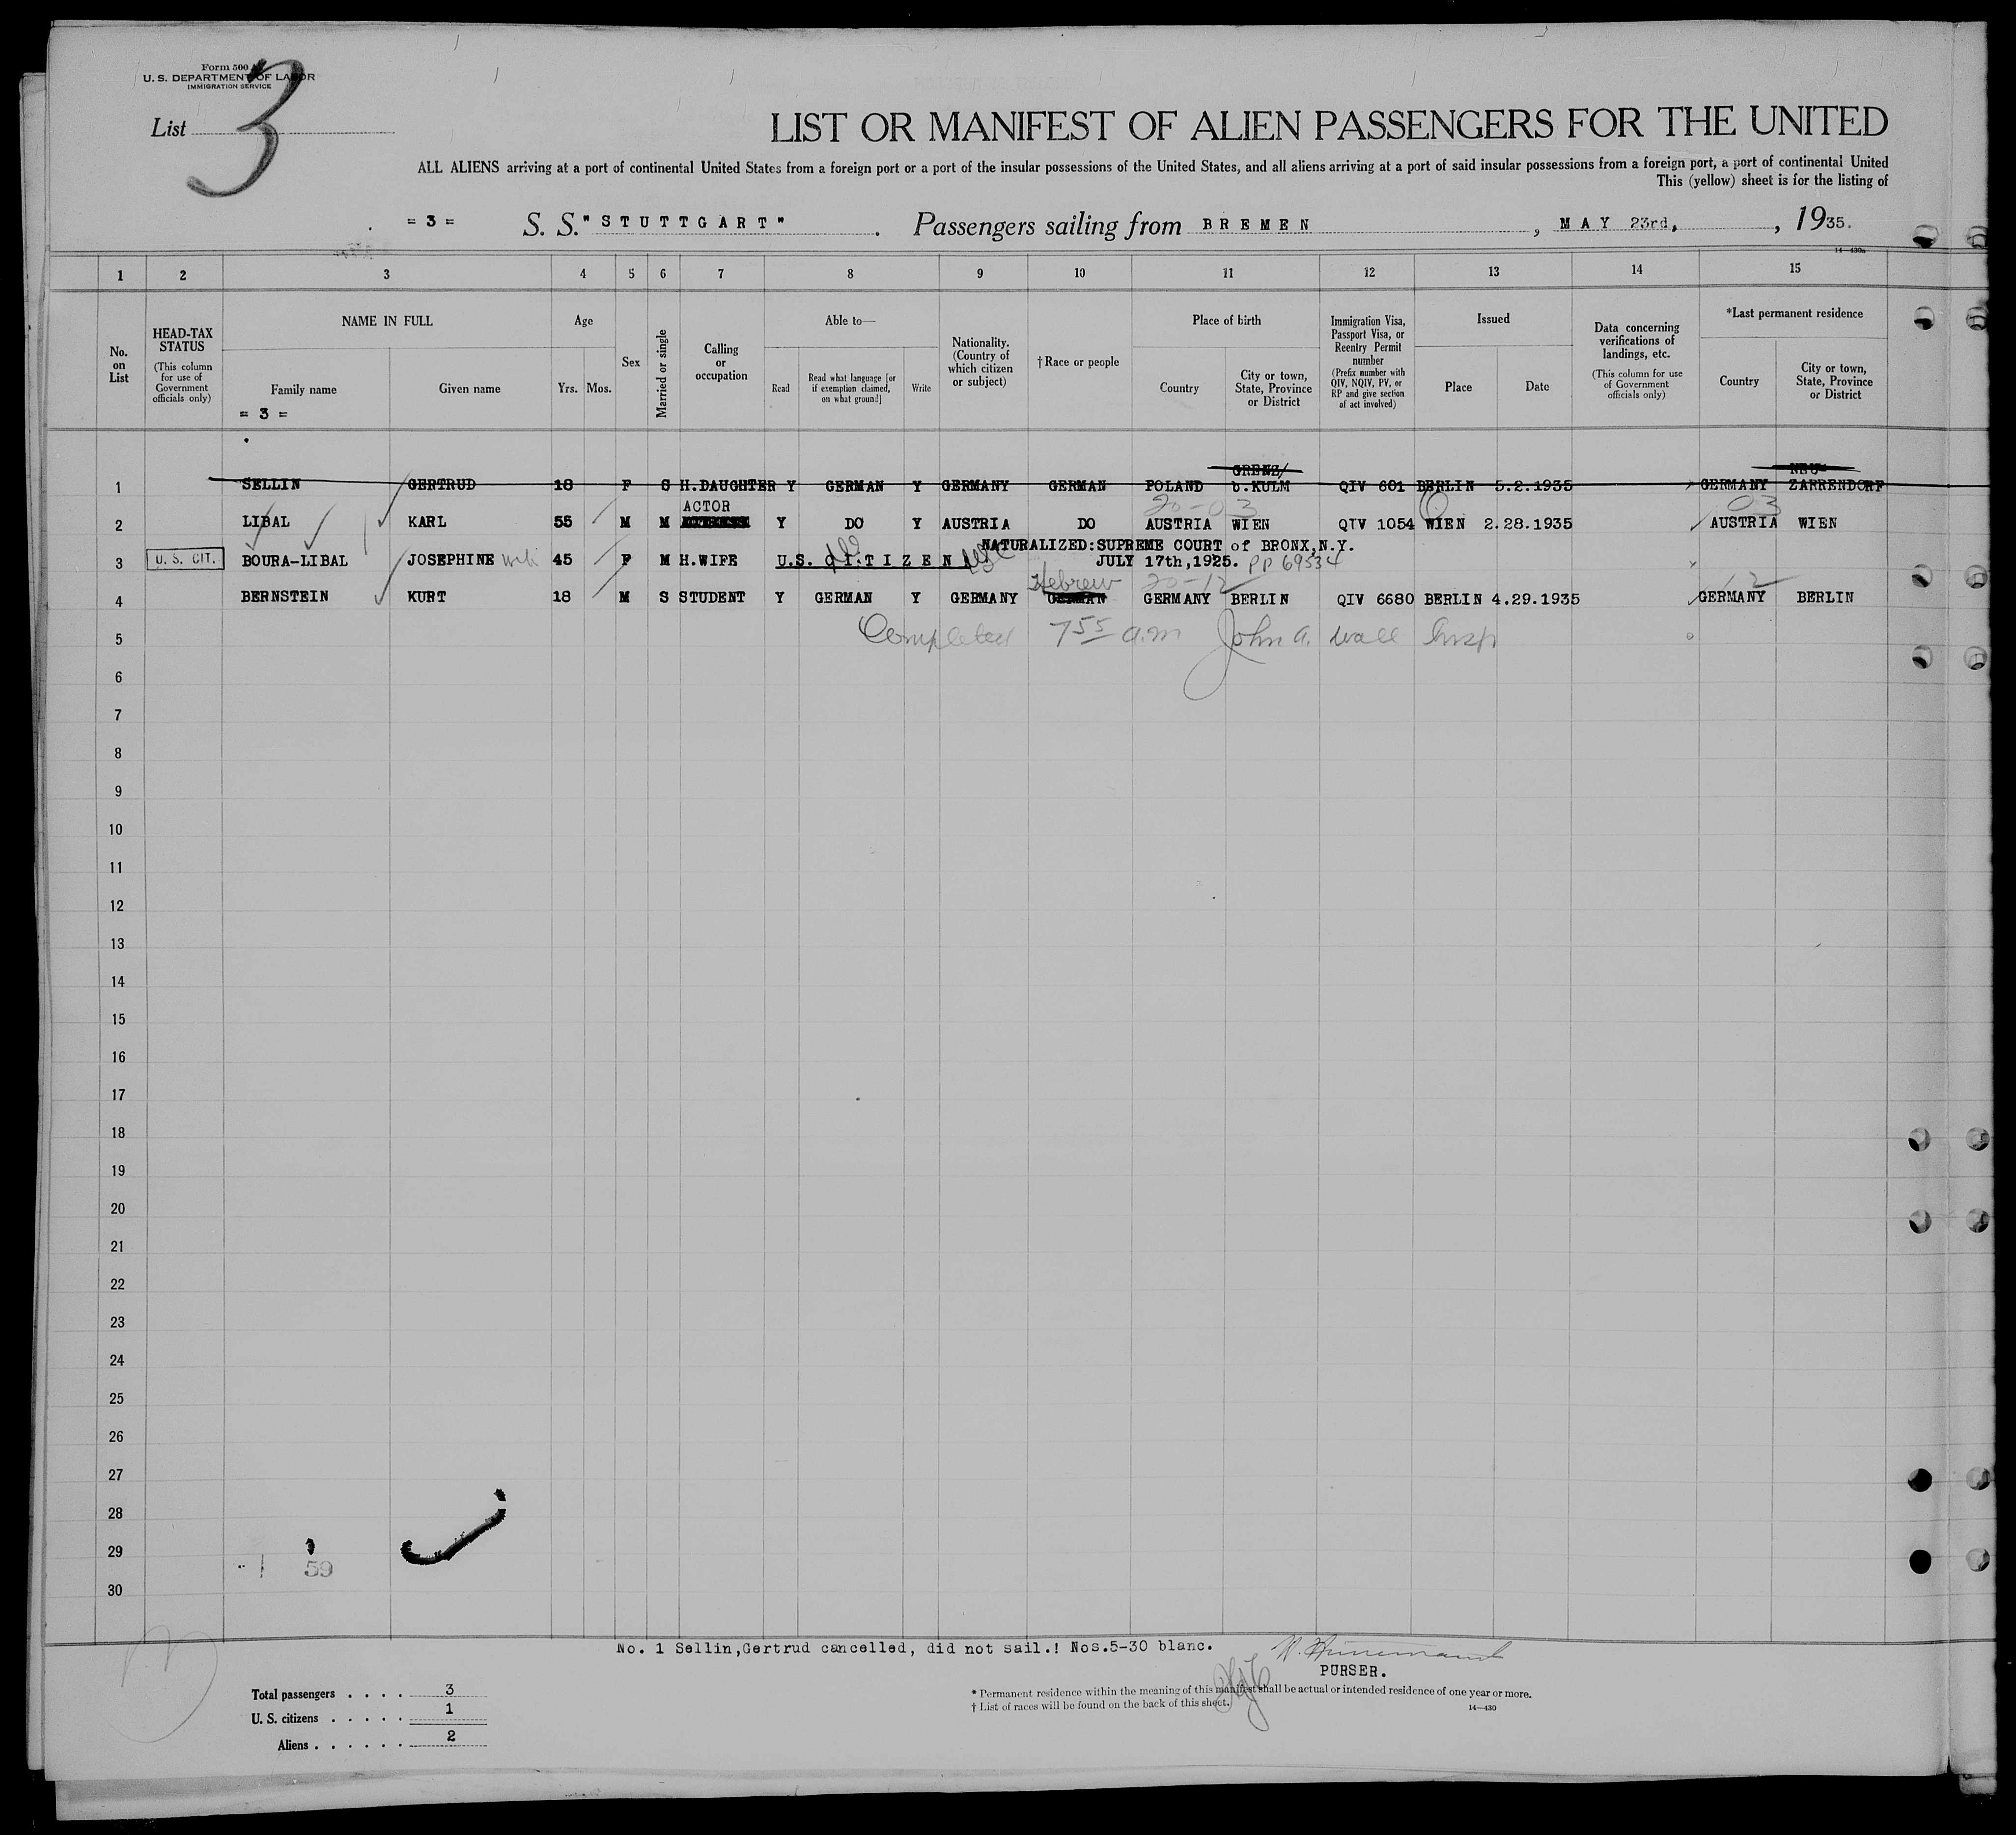 Form 500 A
U. S. DEPARTMENT OF LABOR
IMMIGRATION SERVICE
List 3
LIST OR MANIFEST OF ALIEN PASSENGERS FOR THE UNITED
ALL ALIENS arriving at a port of continental United States from a foreign port or a port of the insular possessions of the United States, and all aliens arriving at a port of said insular possessions from a foreign port, a port of continental United
This (yellow) sheet is for the listing of
= 3 = S. S. "STUTTGART" Passengers sailing from BREMEN, MAY 23rd, 1935.
14—430a
1 2 3 4 5 6 7 8 9 10 11 12 13 14 15
No. on List
HEAD-TAX STATUS (This column for use of Government officials only)
NAME IN FULL
Family name
Given name
= 3 =
Age
Yrs. Mos.
Sex
Married or single
Calling or occupation
Able to—
Read
Read what language [or if exemption claimed, on what ground]
Write
Nationality. (Country of which citizen or subject)
† Race or people
Place of birth
Country
City or town, State, Province or District
Immigration Visa, Passport Visa, or Reentry Permit number (Prefix number with QIV, NQIV, PV, or RP and give section of act involved)
Issued
Place
Date
Data concerning verifications of landings, etc. (This column for use of Government officials only)
*Last permanent residence
Country
City or town, State, Province or District
GRENZ/ NEU-
1 SELLIN GERTRUD 18 F S H.DAUGHTER Y GERMAN Y GERMANY GERMAN POLAND b.KULM QIV 601 BERLIN 5.2.1935 GERMANY ZARRENDORF
ACTOR 20-03 03
2 LIBAL KARL 55 M M Y DO Y AUSTRIA DO AUSTRIA WIEN QIV 1054 WIEN 2.28.1935 AUSTRIA WIEN
NATURALIZED:SUPREME COURT of BRONX,N.Y.
3 U. S. CIT. BOURA-LIBAL JOSEPHINE 45 F M H.WIFE U.S. CITIZEN JULY 17th,1925. PP 69534
Hebrew 20-12 12
4 BERNSTEIN KURT 18 M S STUDENT Y GERMAN Y GERMANY GERMAN GERMANY BERLIN QIV 6680 BERLIN 4.29.1935 GERMANY BERLIN
5 Completed 7 55 a.m John A. Wall Insp
6
7
8
9
10
11
12
13
14
15
16
17
18
19
20
21
22
23
24
25
26
27
28
29
59
30
No. 1 Sellin,Gertrud cancelled, did not sail.! Nos.5-30 blanc.
PURSER.
Total passengers . . . . 3
U. S. citizens . . . . . 1
Aliens . . . . . . 2
* Permanent residence within the meaning of this manifest shall be actual or intended residence of one year or more.
† List of races will be found on the back of this sheet.
14—430